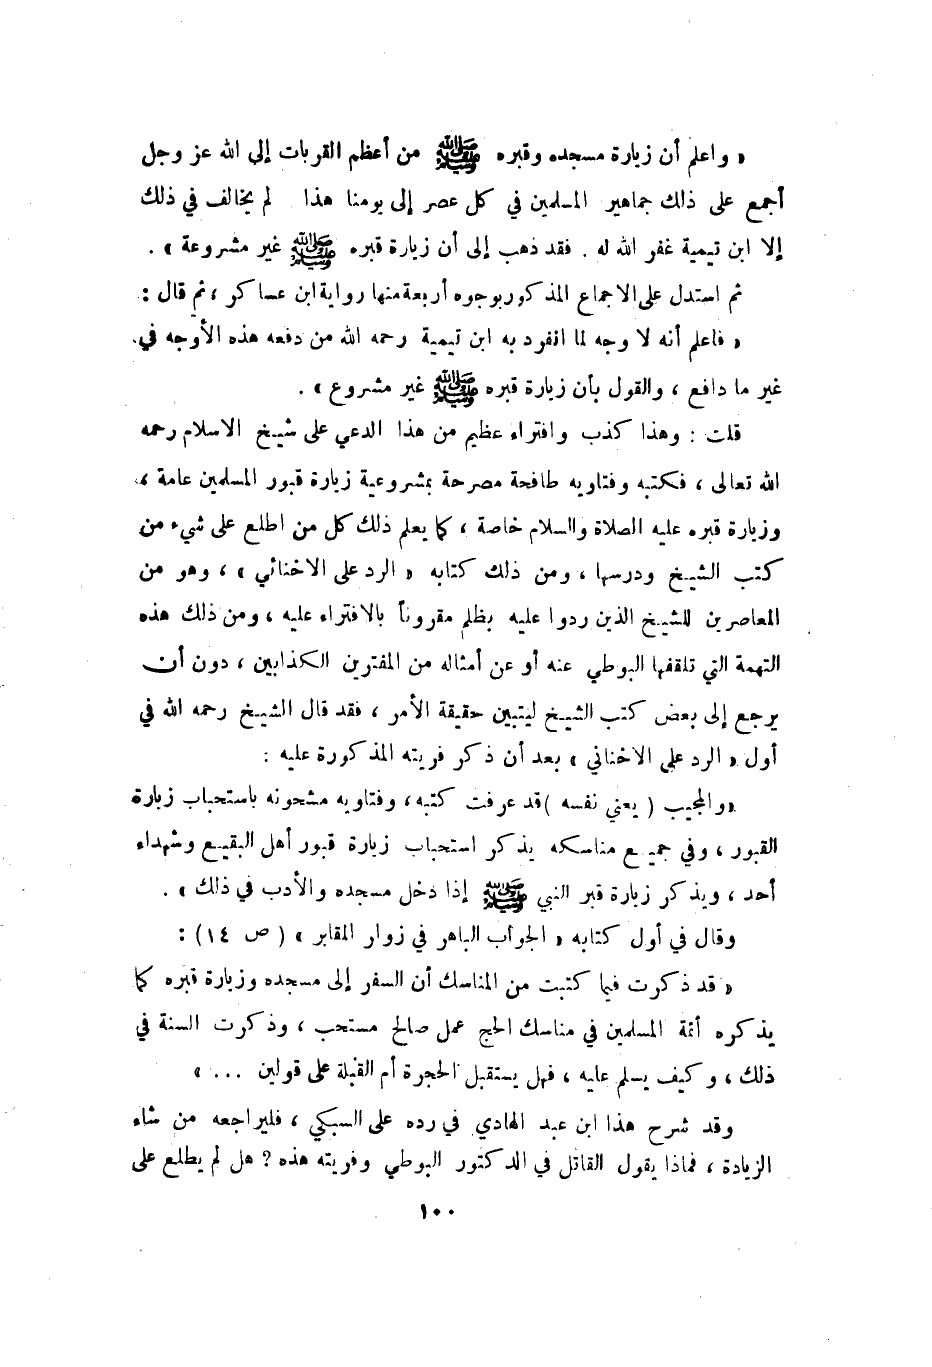 « واعلم أن زيارة مسجده وقبره ﷺ من أعظم القربات إلى الله عز وجل
أجمع على ذلك جماهير المسلمين في كل عصر إلى يومنا هذا لم يخالف في ذلك
إلا ابن تيمية غفر الله له . فقد ذهب إلى أن زيارة قبره ﷺ غير مشروعة » .
ثم استدل على الاجماع المذكور بوجوه أربعة منها رواية ابن عساكر ، ثم قال :
« فاعلم أنه لا وجه لما انفرد به ابن تيمية رحمه الله من دفعه هذه الأوجه في
غير ما دافع ، والقول بأن زيارة قبره ﷺ غير مشروع » .
قلت : وهذا كذب وافتراء عظيم من هذا الدعي على شيخ الاسلام رحمه
الله تعالى ، فكتبه وفتاويه طافحة مصرحة بمشروعية زيارة قبور المسلمين عامة ،
وزيارة قبره عليه الصلاة والسلام خاصة ، كما يعلم ذلك كل من اطلع على شيء من
كتب الشيخ ودرسها ، ومن ذلك كتابه « الرد على الاخنائي » ، وهو من
المعاصرين للشيخ الذين ردوا عليه بظلم مقروناً بالافتراء عليه ، ومن ذلك هذه
التهمة التي تلقفها البوطي عنه أو عن أمثاله من المفترين الكذابين ، دون أن
يرجع إلى بعض كتب الشيخ ليتبين حقيقة الأمر ، فقد قال الشيخ رحمه الله في
أول « الرد على الاخنائي » بعد أن ذكر فريته المذكورة عليه :
« والمجيب ( يعني نفسه ) قد عرفت كتبه ، وفتاويه مشحونه باستحباب زيارة
القبور ، وفي جميع مناسكه يذكر استحباب زيارة قبور أهل البقيع وشهداء
أحد ، ويذكر زيارة قبر النبي ﷺ إذا دخل مسجده والأدب في ذلك » .
وقال في أول كتابه « الجواب الباهر في زوار المقابر » ( ص ١٤ ) :
« قد ذكرت فيما كتبت من المناسك أن السفر إلى مسجده وزيارة قبره كما
يذكره أئمة المسلمين في مناسك الحج عمل صالح مستحب ، وذكرت السنة في
ذلك ، وكيف يسلم عليه ، فهل يستقبل الحجرة أم القبلة على قولين ... »
وقد شرح هذا ابن عبد الهادي في رده على السبكي ، فليراجعه من شاء
الزيادة ، فماذا يقول القائل في الدكتور البوطي وفريته هذه ؟ هل لم يطلع على
١٠٠